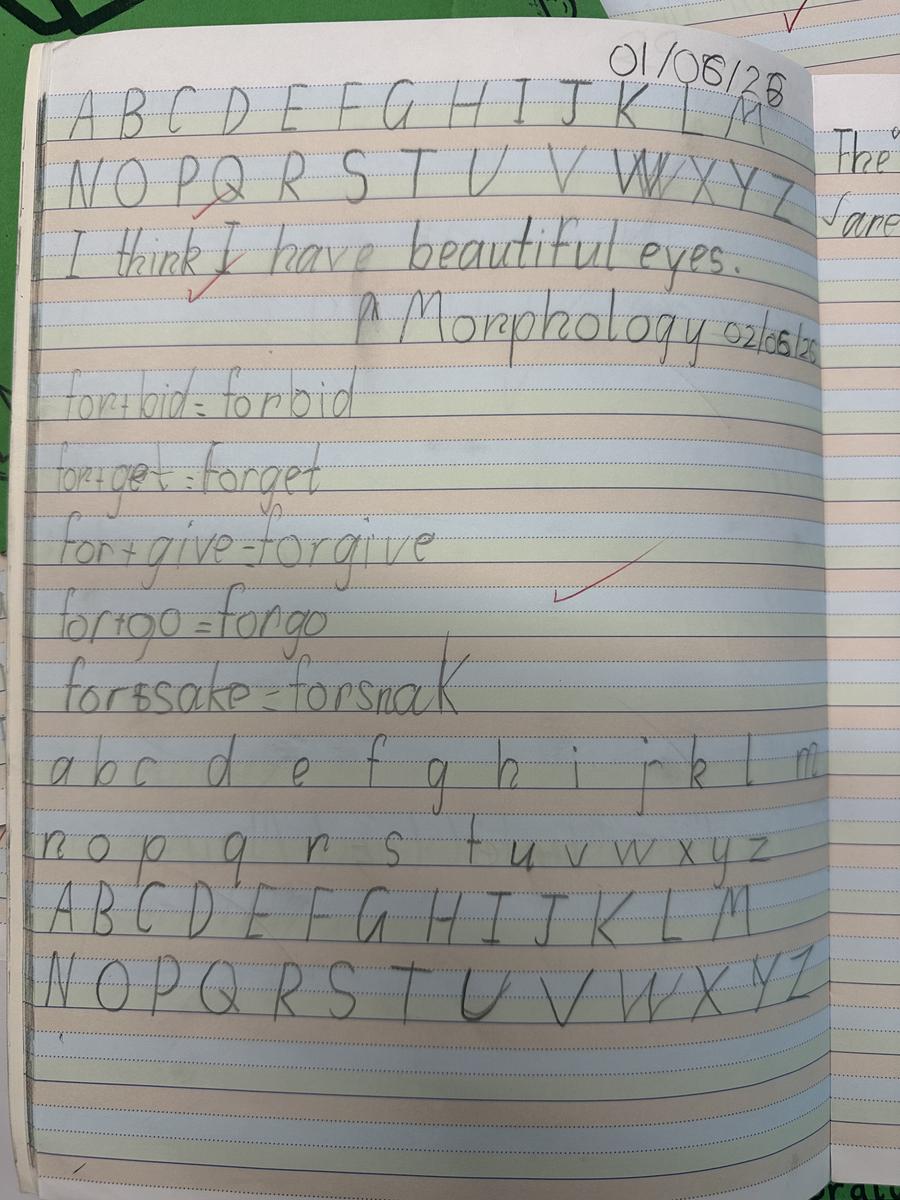 01/06/26
A B C D E F G H I J K L M
N O P Q R S T U V W X Y Z
I think I have beautiful eyes.
A Morphology 02/06/26
for+bid=forbid
for+get=forget
for+give=forgive
for+go=forgo
for+sake=forsnak
a b c d e f g h i j k l m
n o p q r s t u v w x y z
A B C D E F G H I J K L M
N O P Q R S T U V W X Y Z
The
are